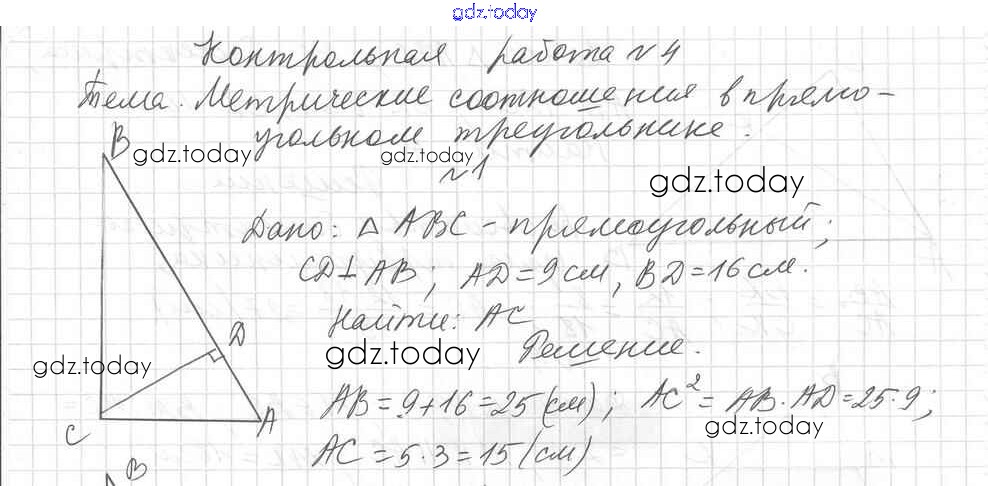 gdz.today
Контрольная работа №4
Тема. Метрические соотношения в прямо-
угольном треугольнике.
B gdz.today gdz.today
№1
gdz.today
Дано: △ ABC - прямоугольный;
CD⊥AB; AD=9 см, BD=16 см.
Найти: AC
D
gdz.today gdz.today Решение.
AB=9+16=25 (см); AC²=AB·AD=25·9;
C A gdz.today
AC=5·3=15 (см)
B